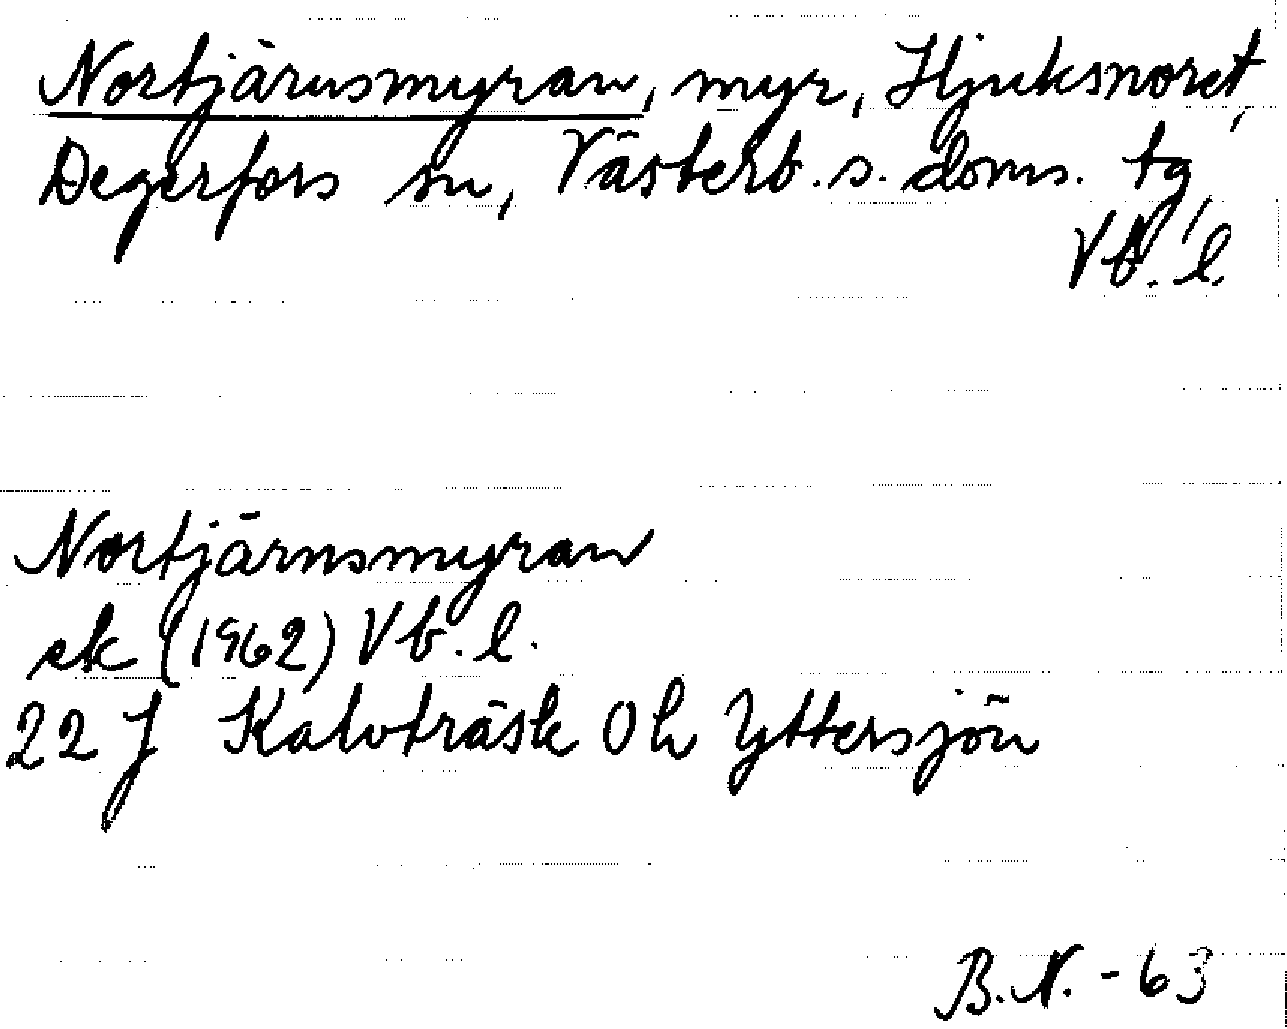 Nortjärnsmyran, myr, Hjuksnoret,
Degerfors sn, Västerb. s. doms. tg,
Vb. l.
Nortjärnsmyran
ek (1962) Vb. l.
22 J Kalvträsk 0 h Yttersjön
B.N. - 63